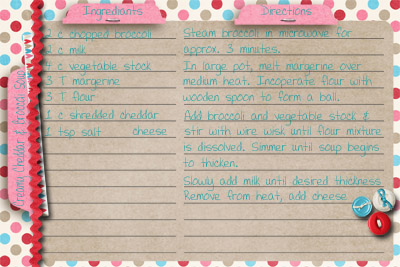 Creamy Cheddar & Brocoli Soup
Ingrediants
2 c chopped broccoli
2 c milk
4 c vegetable stock
3 T margerine
3 T flour
1 c shredded cheddar
1 tsp salt cheese
Directions
Steam broccoli in microwave for
approx. 3 minutes.
In large pot, melt margerine over
medium heat. Incoperate flour with
wooden spoon to form a ball.
Add broccoli and vegetable stock &
stir with wire wisk until flour mixture
is dissolved. Simmer until soup begins
to thicken.
Slowly add milk until desired thickness
Remove from heat, add cheese